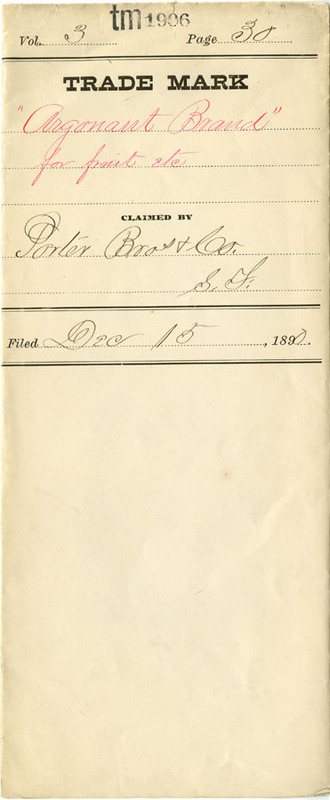 tm 1906
Vol. 3 Page 30
TRADE MARK
"Argonaut Brand"
for fruit etc
CLAIMED BY
Porter Bros & Co.
S. F.
Filed Dec 15, 1890.